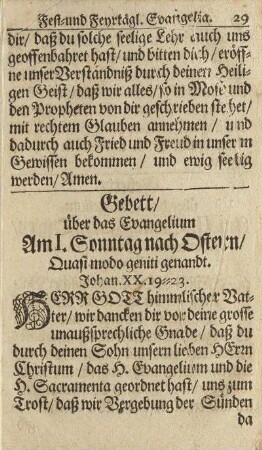 Fest- und Feyrtägl. Evangelia. 29
dir/ daß du solche seelige Lehr auch uns
geoffenbahret hast/ und bitten dich/ eröff-
ne unser Verständniß durch deinen Heili-
gen Geist/ daß wir alles/ so in Mose und
den Propheten von dir geschrieben stehet/
mit rechtem Glauben annehmen/ und
dadurch auch Fried und Freud in unserm
Gewissen bekommen/ und ewig seelig
werden/ Amen.
Gebett/
über das Evangelium
Am I. Sonntag nach Ostern/
Quasi modo geniti genandt.
Johan. XX. 19-23.
HERR GOTT himmlischer Vat-
ter/ wir dancken dir vor deine grosse
unaußsprechliche Gnade/ daß du
durch deinen Sohn unsern lieben HErrn
Christum/ das H. Evangelium und die
H. Sacramenta geordnet hast/ uns zum
Trost/ daß wir Vergebung der Sünden
da